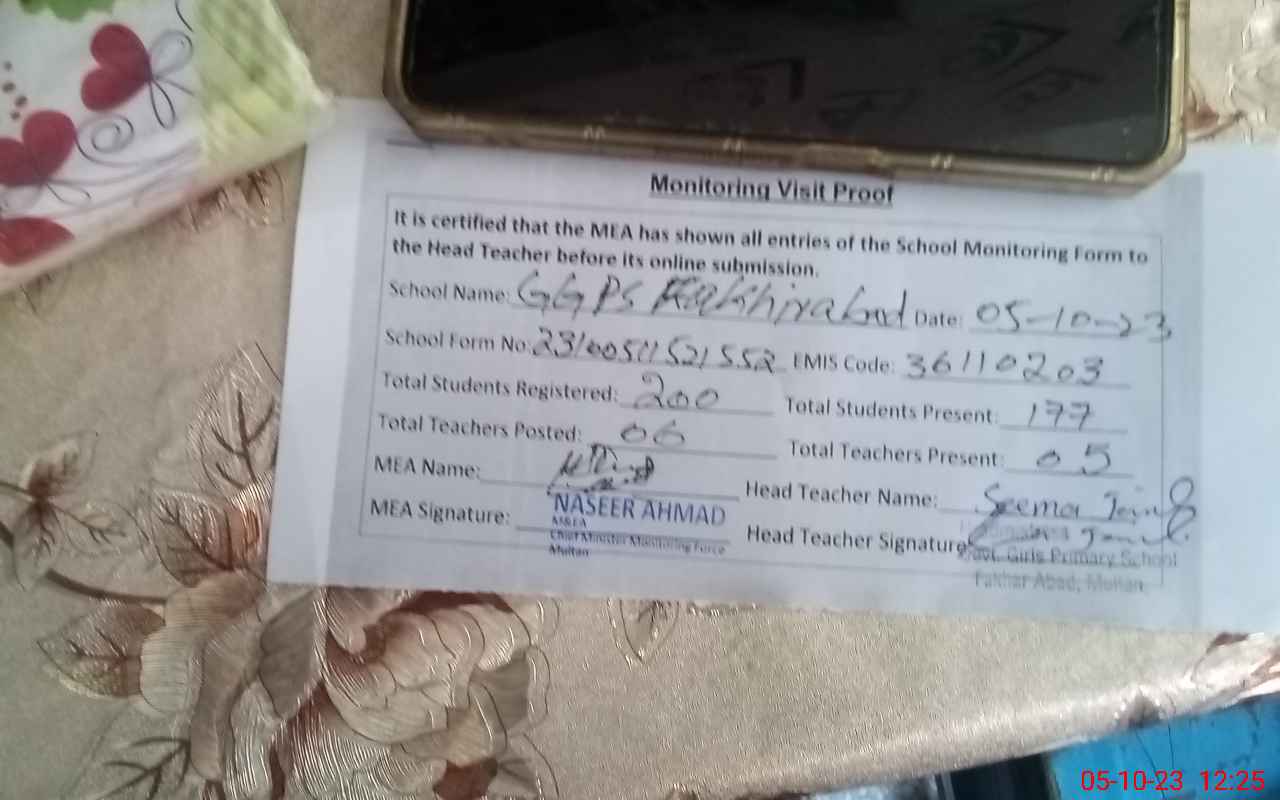 Monitoring Visit Proof
It is certified that the MEA has shown all entries of the School Monitoring Form to
the Head Teacher before its online submission.
School Name: GGPS Fakhirabad Date: 05-10-23
School Form No: 23100511521552 EMIS Code: 36110203
Total Students Registered: 200 Total Students Present: 177
Total Teachers Posted: 06 Total Teachers Present: 05
MEA Name: Head Teacher Name: Seema
MEA Signature: NASEER AHMAD Head Teacher Signature
M&EA
Chief Minister Monitoring Force
Multan
Govt. Girls Primary School
Fakhar Abad, Multan
05-10-23 12:25